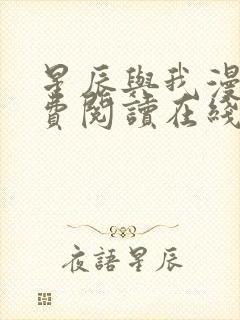 星辰與我漫
費閱讀在綫
夜語星辰